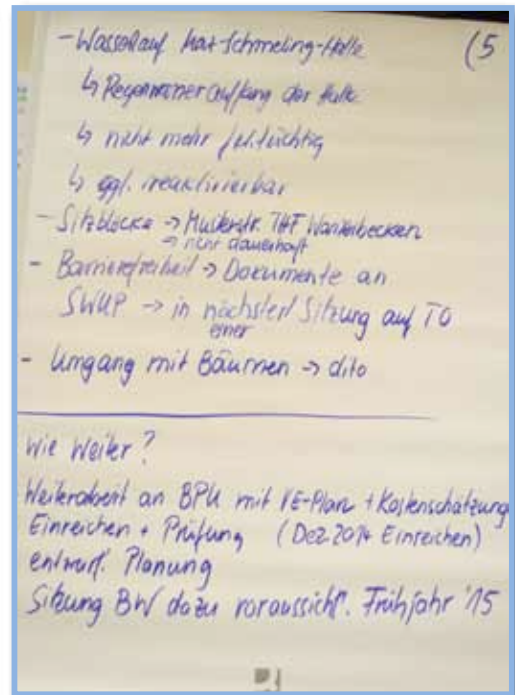 - Wasserlauf Max-Schmeling-Halle (5
↳ Regenwasserauffang der Halle
↳ nicht mehr fkt.tüchtig
↳ ggf. reaktivierbar
- Sitzblöcke → Musterstr. THF Wasserbecken
→ nicht dauerhaft
- Barrierefreiheit → Dokumente an
SWUP → in nächster/ Sitzung auf TO
einer
- Umgang mit Bäumen → dito
Wie weiter?
Weiterarbeit an BPU mit VE-Plan + Kostenschätzung
Einreichen + Prüfung (Dez. 2014 Einreichen)
entwurf. Planung
Sitzung BW dazu voraussicht. Frühjahr '15